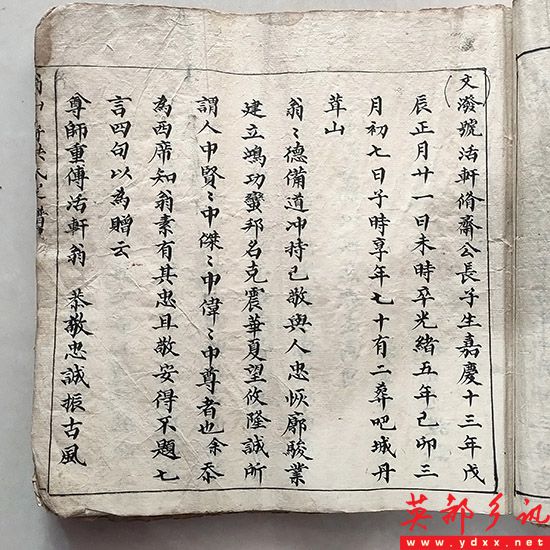 文潑號活軒脩齋公長子生嘉慶十三年戊
辰正月廿一日未時卒光緒五年己卯三
月初七日子時享年七十有二葬吧城丹
葺山
翁〻德備道冲持己敬與人忠恢廓駿業
建立鴻功蠻邦名克震華夏望攸隆誠所
謂人中賢〻中傑〻中偉〻中尊者也余忝
為西席知翁素有其忠且敬安得不題七
言四句以為贈云
尊師重傅活軒翁 恭敬忠誠振古風
英都乡讯
www.ydxx.net